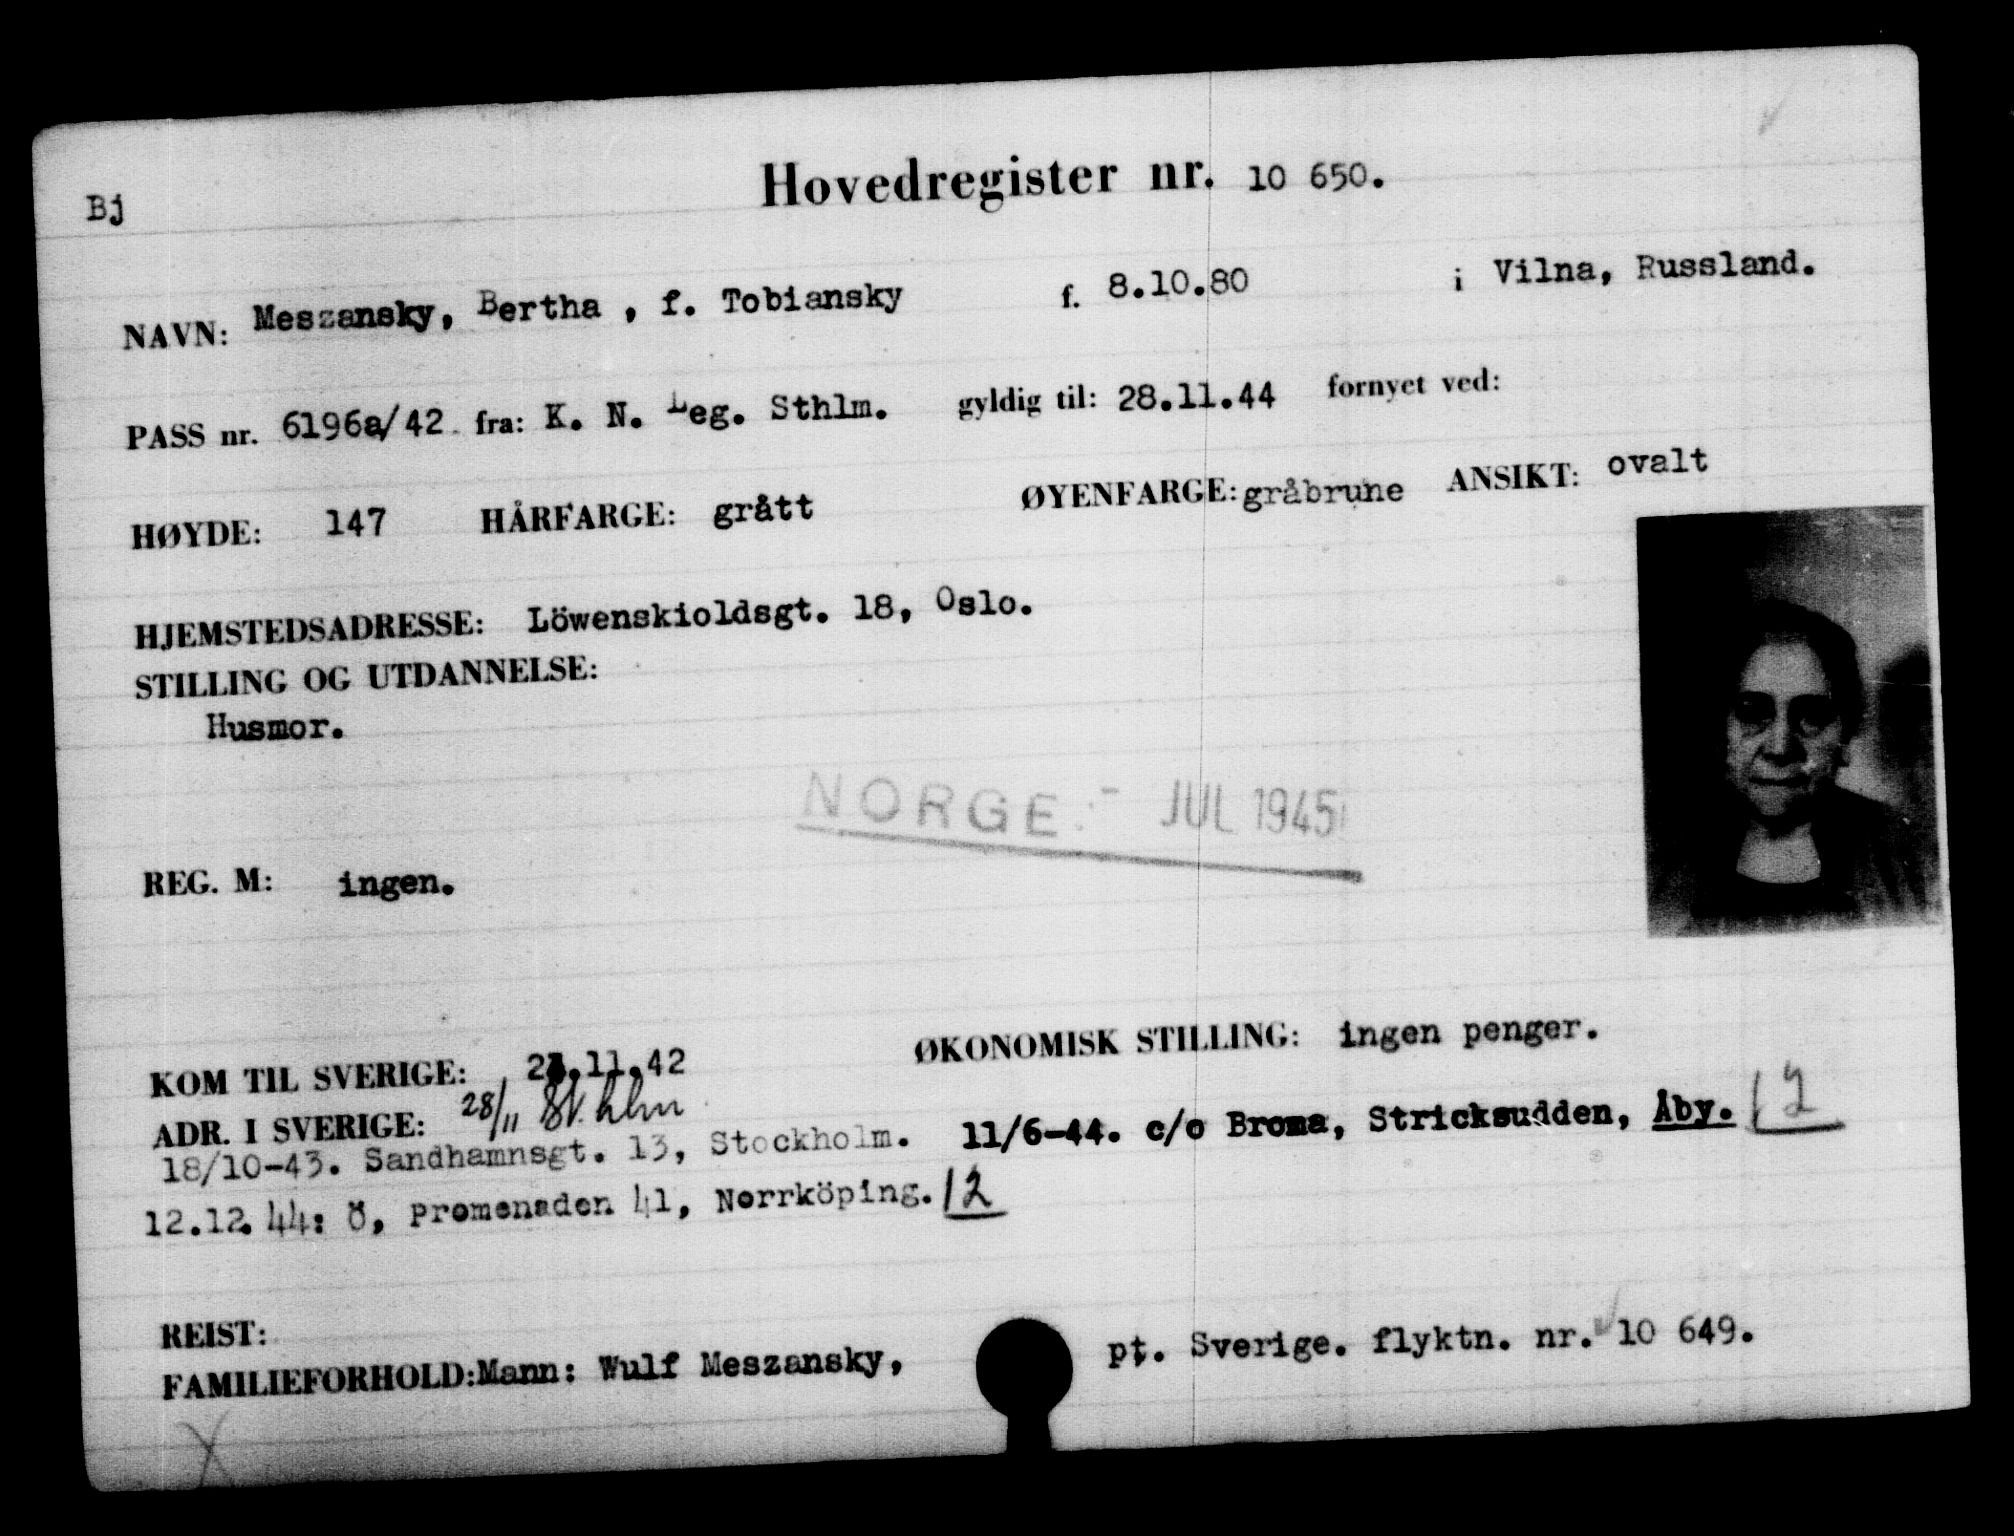 Bj
Hovedregister nr. 10 650.
NAVN: Meszansky, Bertha , f. Tobiansky f. 8.10.80 i Vilna, Russland.
PASS nr. 6196a/42 fra: K. N. Leg. Sthlm. gyldig til: 28.11.44 fornyet ved:
HØYDE: 147 HÅRFARGE: grått ØYENFARGE: gråbrune ANSIKT: ovalt
HJEMSTEDSADRESSE: Löwenskioldsgt. 18, Oslo.
STILLING OG UTDANNELSE:
Husmor.
NORGE.- JUL 1945
REG. M: ingen.
KOM TIL SVERIGE: .11.42 ØKONOMISK STILLING: ingen penger.
ADR. I SVERIGE: 28/11 St.hlm
18/10-43. Sandhamnsgt. 13, Stockholm. 11/6-44. c/o Broma, Stricksudden, Åby. 12
12.12.44: Ö, Promenaden 41, Norrköping. 12
REIST:
FAMILIEFORHOLD: Mann: Wulf Meszansky, pt. Sverige. flyktn. nr. 10 649.
X